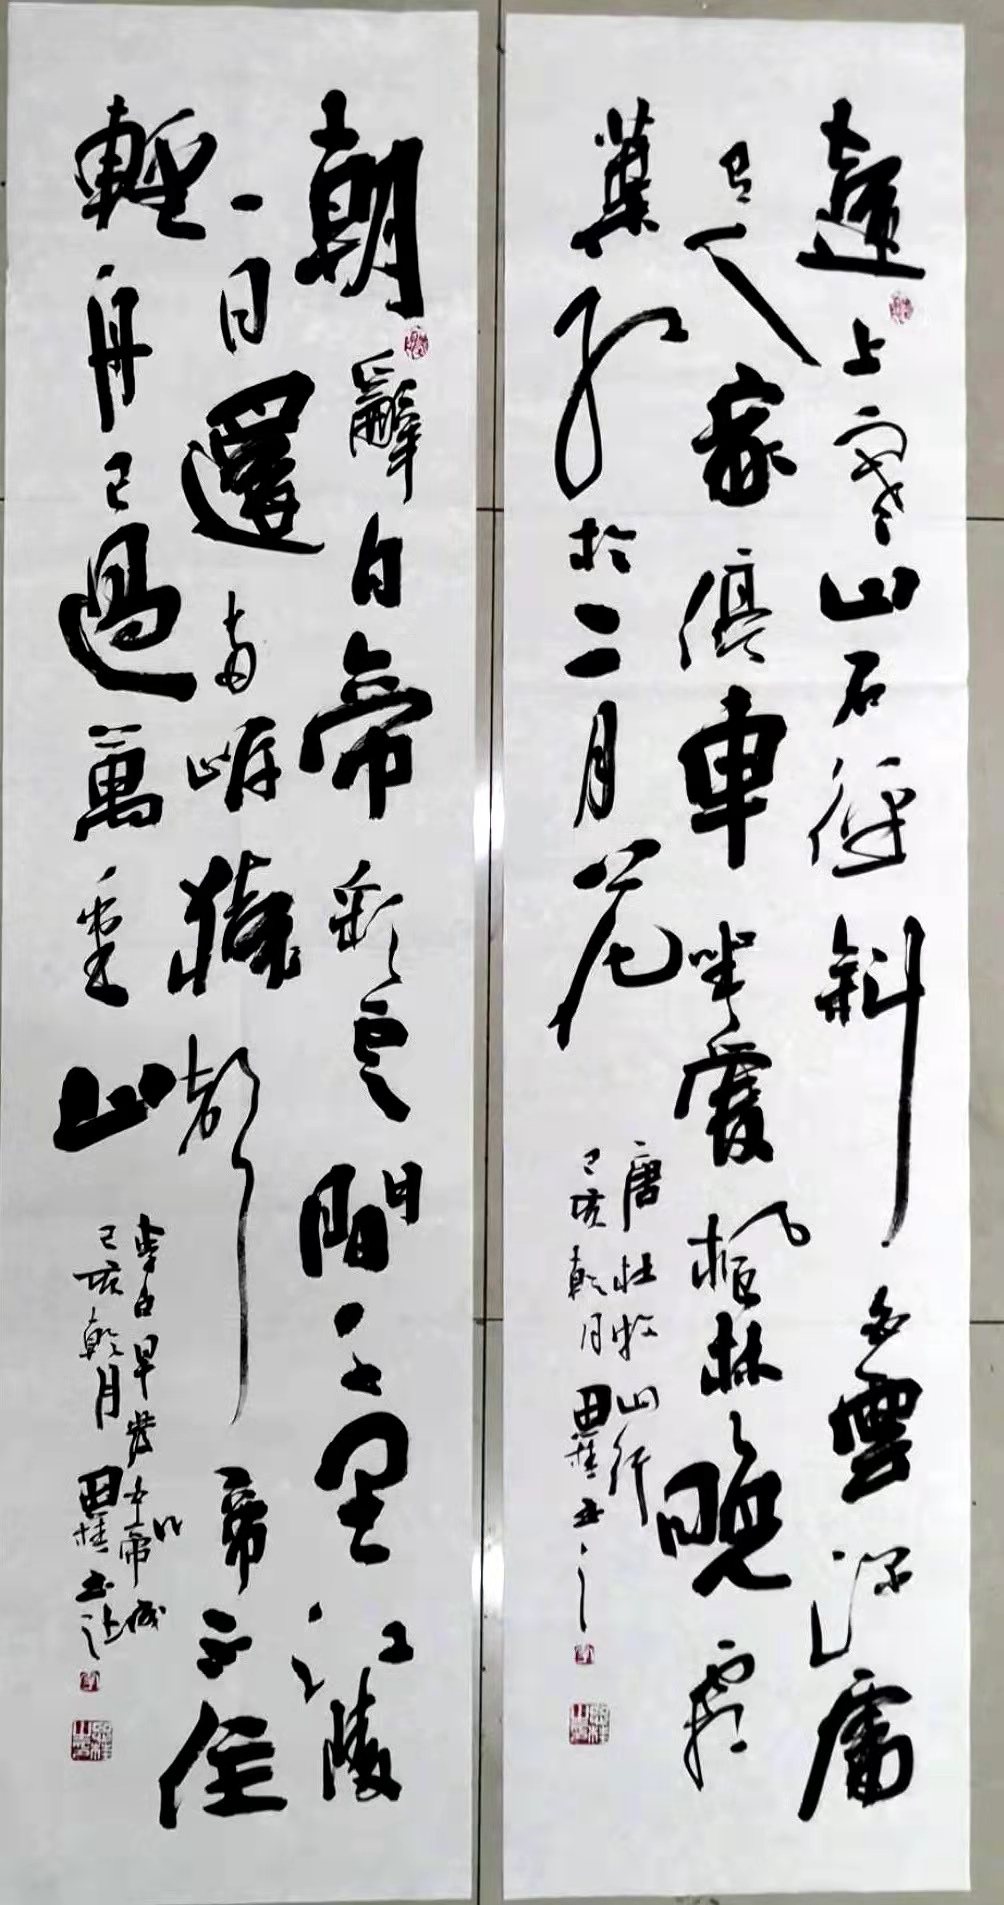 遠上寒山石徑斜白雲深處
有人家停車坐愛楓林晚霜
葉紅於二月花
唐杜牧山行
己亥乾月
朝辭白帝彩雲間千里江陵
一日還兩岸猿聲啼不住
輕舟已過萬重山
李白早發白帝城
己亥乾月